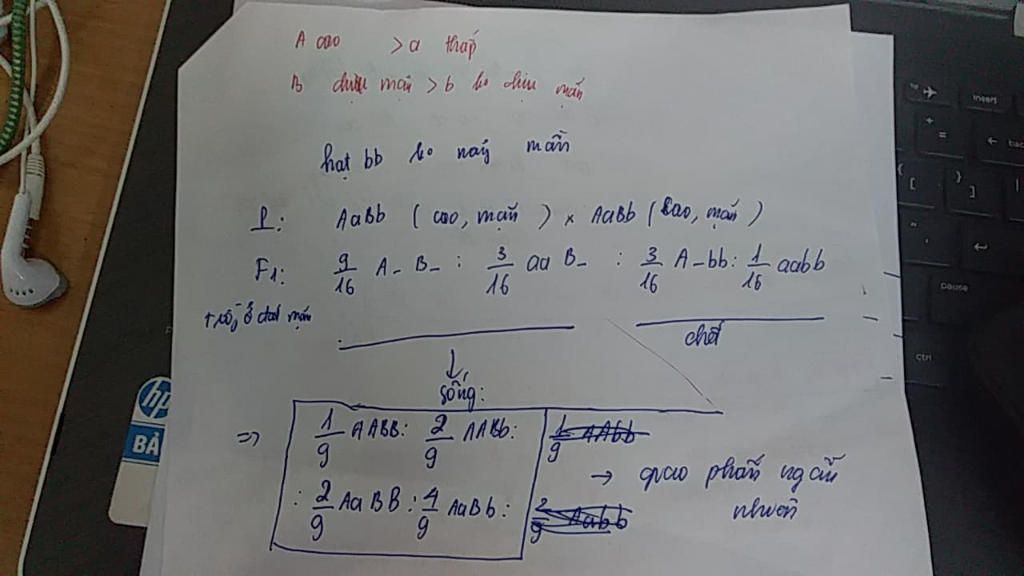 A cao > a thấp
B chịu mặn > b ko chịu mặn
hạt bb ko nảy mần
P: AaBb (cao, mặn) × AaBb (cao, mặn)
F1: 9/16 A-B- : 3/16 aaB- : 3/16 A-bb : 1/16 aabb
trồng ở đất mặn
chết
sống:
=> 1/9 AABB : 2/9 AABb : 1/9 AAbb
: 2/9 AaBB : 4/9 AaBb : 2/9 Aabb
→ giao phấn ngẫu
nhiên
hp
BẢ
insert
backs
pause
ctrl